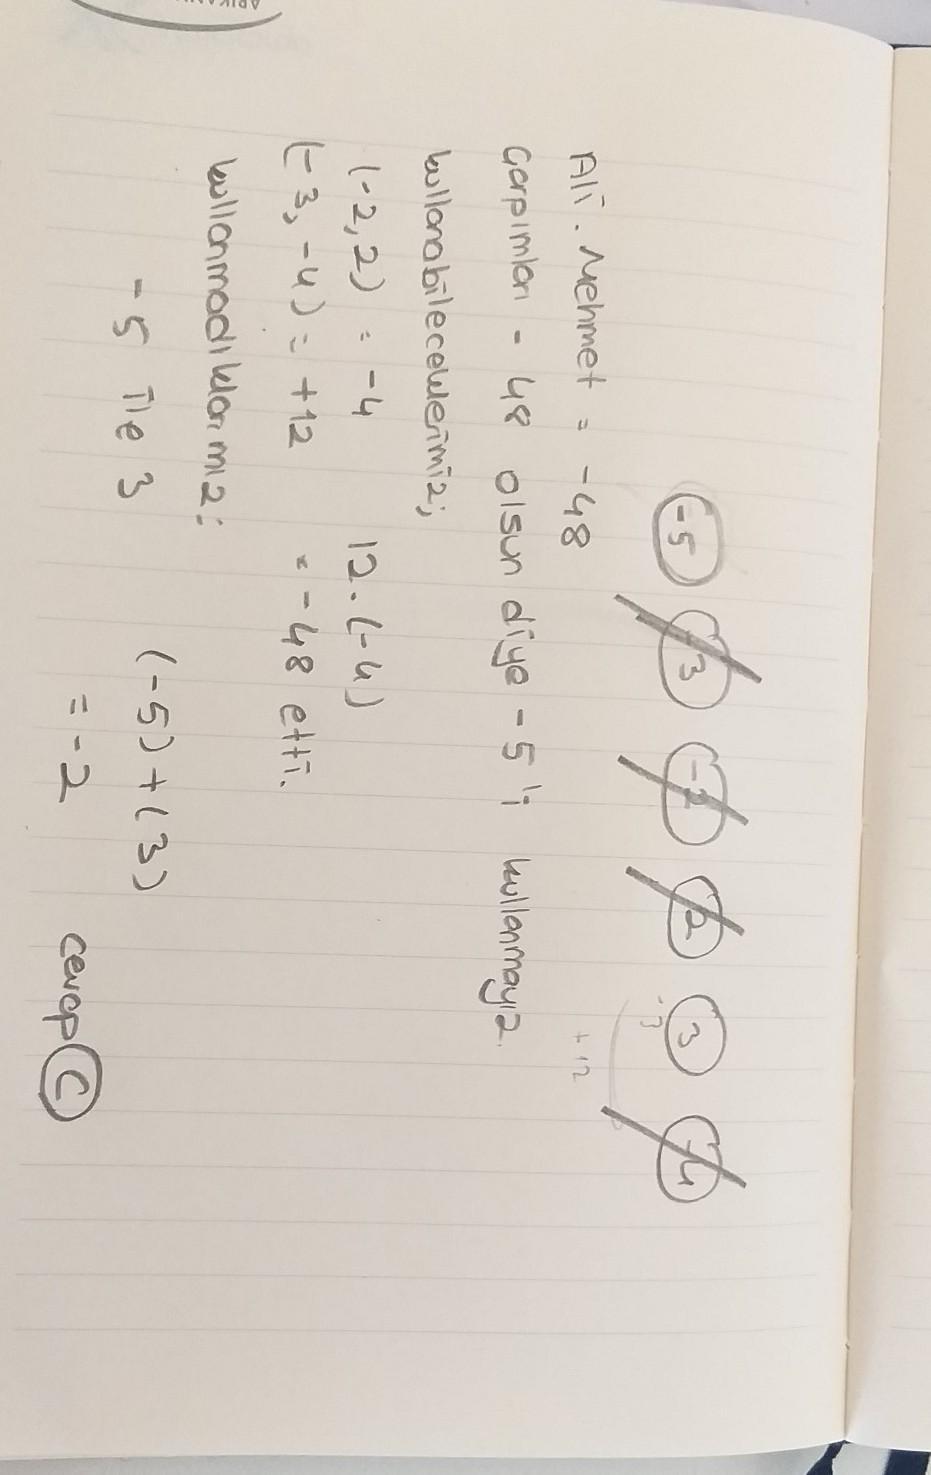 -5 3 -2 2 3 -4
Ali . Mehmet = -48
Çarpımları - 48 olsun diye - 5 'i kullanmayız.
+12
kullanabileceklerimiz;
(-2,2) = -4 12.(-4)
(-3, -4) = +12 = -48 etti.
kullanmadıklarımız:
-5 ile 3 (-5) + (3)
= -2 cevap C